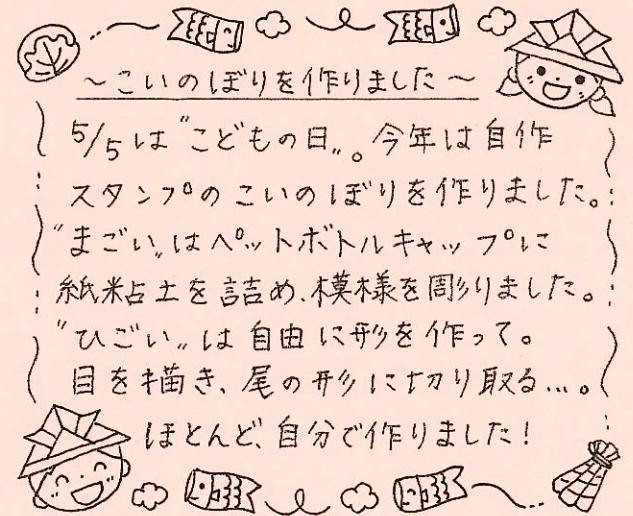 ～こいのぼりを作りました～
5/5は〝こどもの日〟。今年は自作
スタンプのこいのぼりを作りました。
〝まごい〟はペットボトルキャップに
紙粘土を詰め、模様を彫りました。
〝ひごい〟は自由に形を作って。
目を描き、尾の形に切り取る…。
ほとんど、自分で作りました！